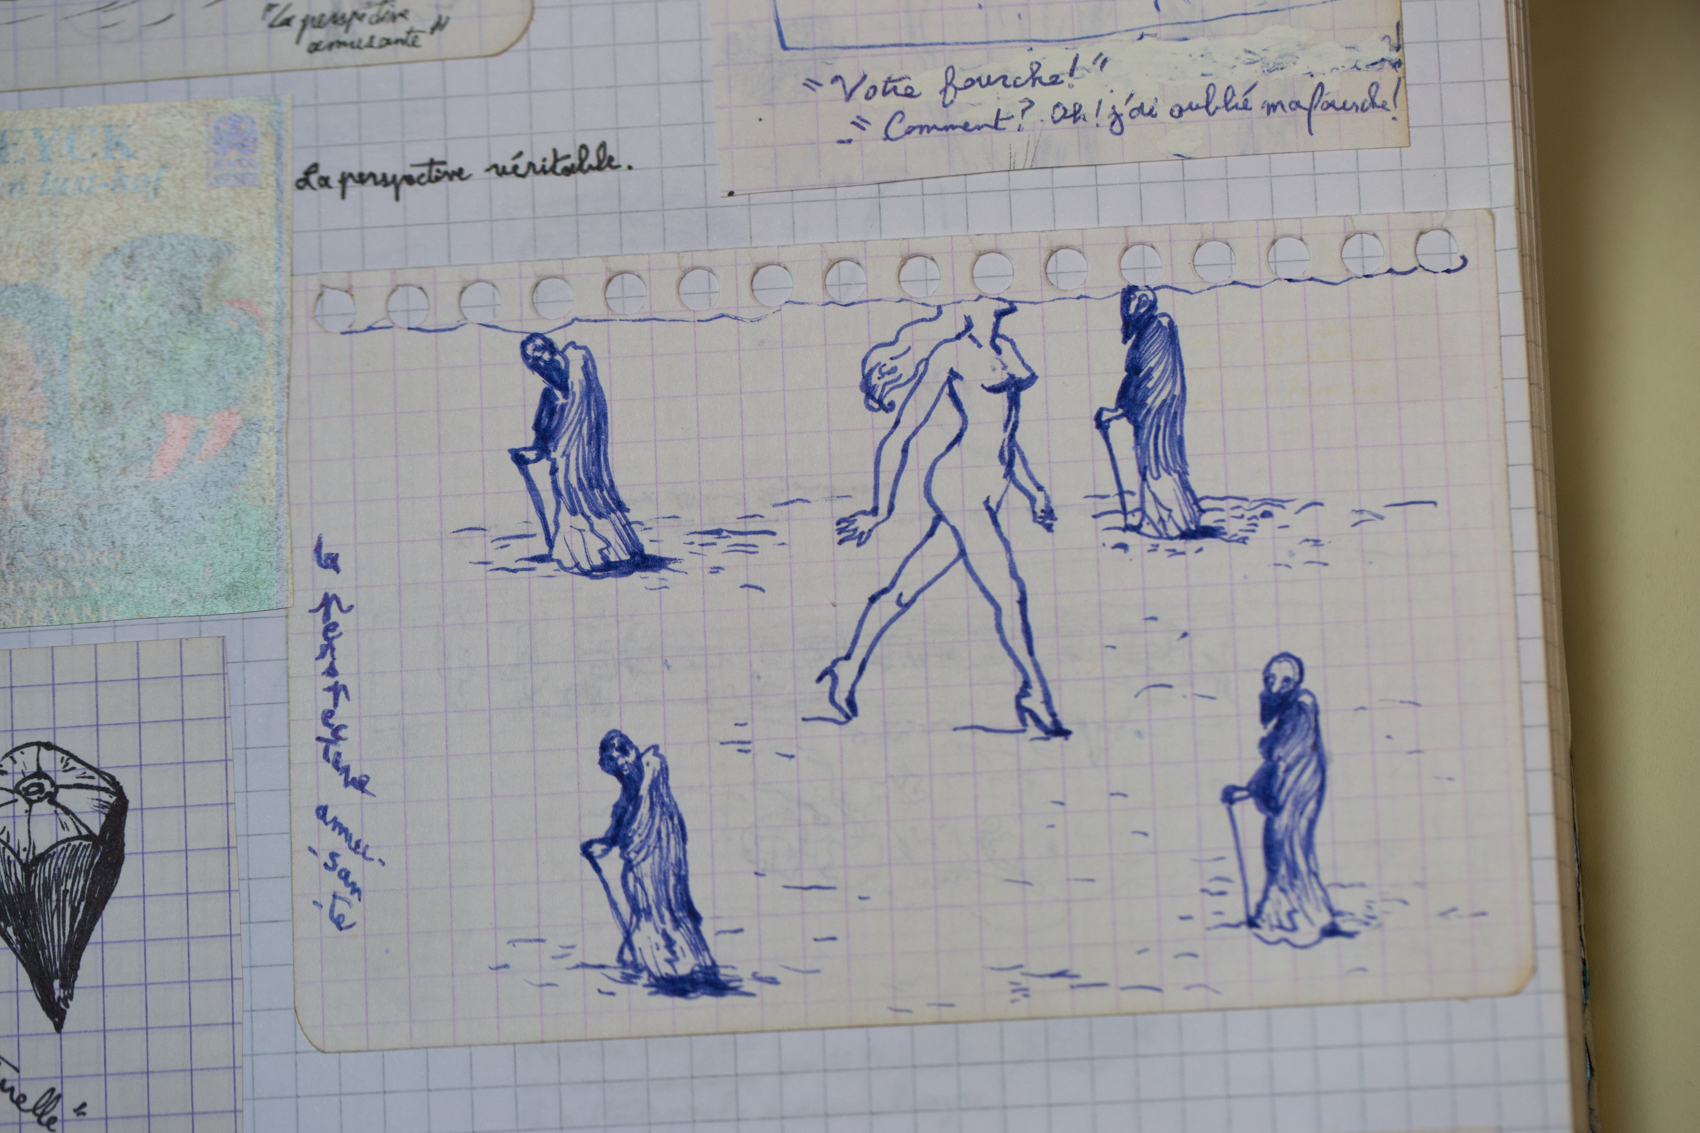 "La perspective
amusante"
"Votre fourche!"
"Comment? Oh! j'ai oublié ma fourche!
EYCK
lust-hof
La perspective véritable.
amu-
san
te
elle"